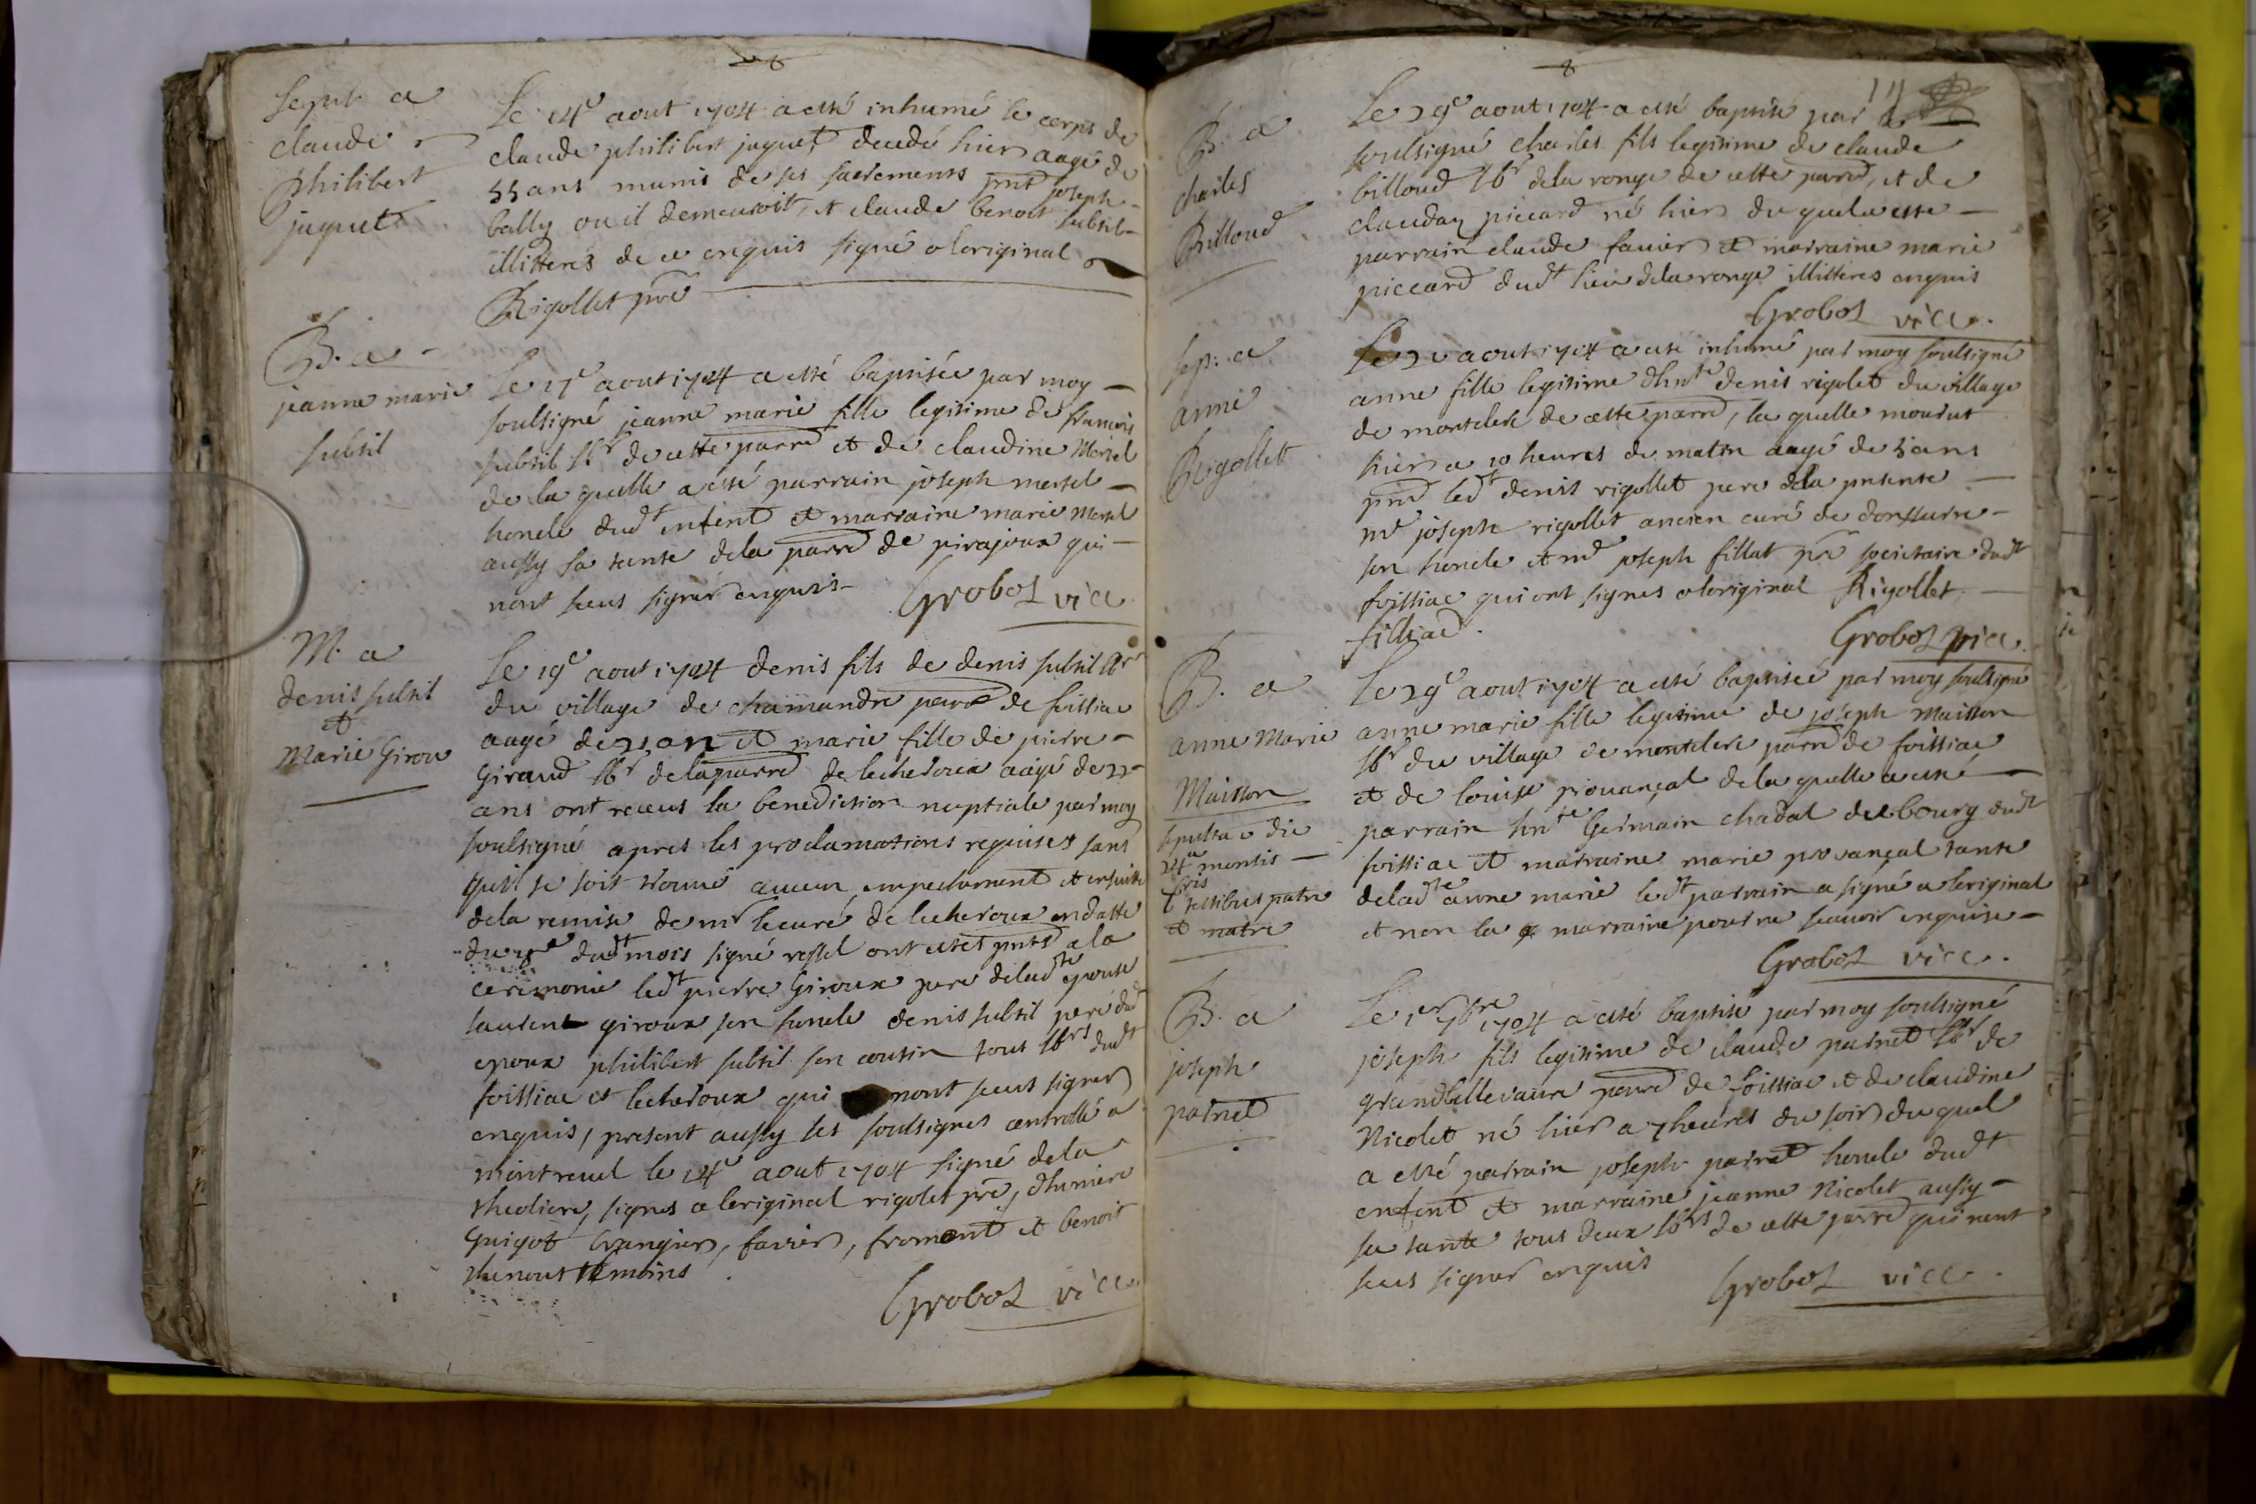 8
Sepult. a
claude
philibert
juquet
Le 14e aout 1704 a esté inhumé le corps de
claude philibert juquet decedé hier aagé de
55 ans munis de ses sacrements pnt joseph
bally ou il demeuroit, et claude benoit subtil
illitterés de ce enquis signé a loriginal
Rigollet pre
B. a
jeanne marie
subtil
Le 17e aout 1704 a esté baptisée par moy
soulsigné jeanne marie fille legitime de francois
subtil lbr de cette parre et de claudine Mersel
de la quelle a esté parrain joseph mersel
honcle dudt enfent et marraine marie Mersel
aussy sa tante dela parre de pirajoux qui
nont sceus signer enquis Grobos vice
M. a
denis subtil
et
Marie Girou
Le 19e aout 1704 denis fils de denis subtil lbr
du village de chamandre parre de foissiac
aagé de an et marie fille de pierre
Giraud lbr dela parre de lecheroux aagé de
ans ont receus la benediction nuptiale par moy
soulsigné apres les proclamations requises sans
quil se soit trouvé aucun empechement et ensuitte
dela remise de mr le curé de lecheroux en datte
du dudt mois signé ressel ont estes pnts a la
ceremonie ledt pierre Giroux pere deladte epouse
laurent giroux son honcle denis subtil pere dudt
epoux philibert subtil son cousin tous lbrs dudt
foissiac et lecheroux qui nont sceus signer
enquis, present aussy les soulsignes controllé a
montreuel le 14e aout 1704 signé dela
theoliere, signes a loriginal rigolet pre, dhumiere
Guigot Grangier, favier, froment et benoit
thenout temoins
Grobos vice
8
B. a
charles
Billoud
Le 29e aout 1704 a esté baptisé par
soulsigné charles fils legitime de claude
billoud lbr dela ronge de cette parre, et de
clauday piccard né hier du quel a esté
parrain claude favier et marraine marie
piccard dudt lieu dela ronge illitteres enquis
Grobos vice.
Sep. a
anne
Rigollet
aout 1704 a esté inhumé par moy soulsigné
anne fille legitime dhnte denis rigolet du village
de montclere de cette parre, la quelle mourut
hier a 10 heures de matin aagé de 5 ans
pnt ledt denis rigollet pere dela presente
mre joseph rigollet ancien curé de
son honcle et mre joseph fillat pre societaire dudt
foissiac qui ont signes a loriginal Rigollet
filliad.
Grobos vice.
B. a
anne Marie
Maisson
sepulta die
mensis
testibus patre
et matre
Le 29e aout 1704 a esté baptisée par moy soulsigné
anne marie fille legitime de joseph Maisson
lbr du village de montclere parre de foissiac
et de louise provançal dela quelle a esté
parrain hnte Germain chadal du bourg dudt
foissiac et marraine marie provançal tante
deladte anne marie ledt parrain a signé a loriginal
et non la marraine pour ne scavoir enquise
Grobos vice.
B. a
joseph
patnet
Le 1er 7bre 1704 a esté baptisé par moy soulsigné
joseph fils legitime de claude patnet lbr de
grandbellevaure parre de foissiac et de claudine
Nicolet né hier a 7 heures du soir du quel
a esté parrain joseph patnet honcle dudt
enfent et marraine jeanne Nicolet aussy
sa tante tous deux lbrs de cette parre qui nont
sceus signer enquis Grobos vice.